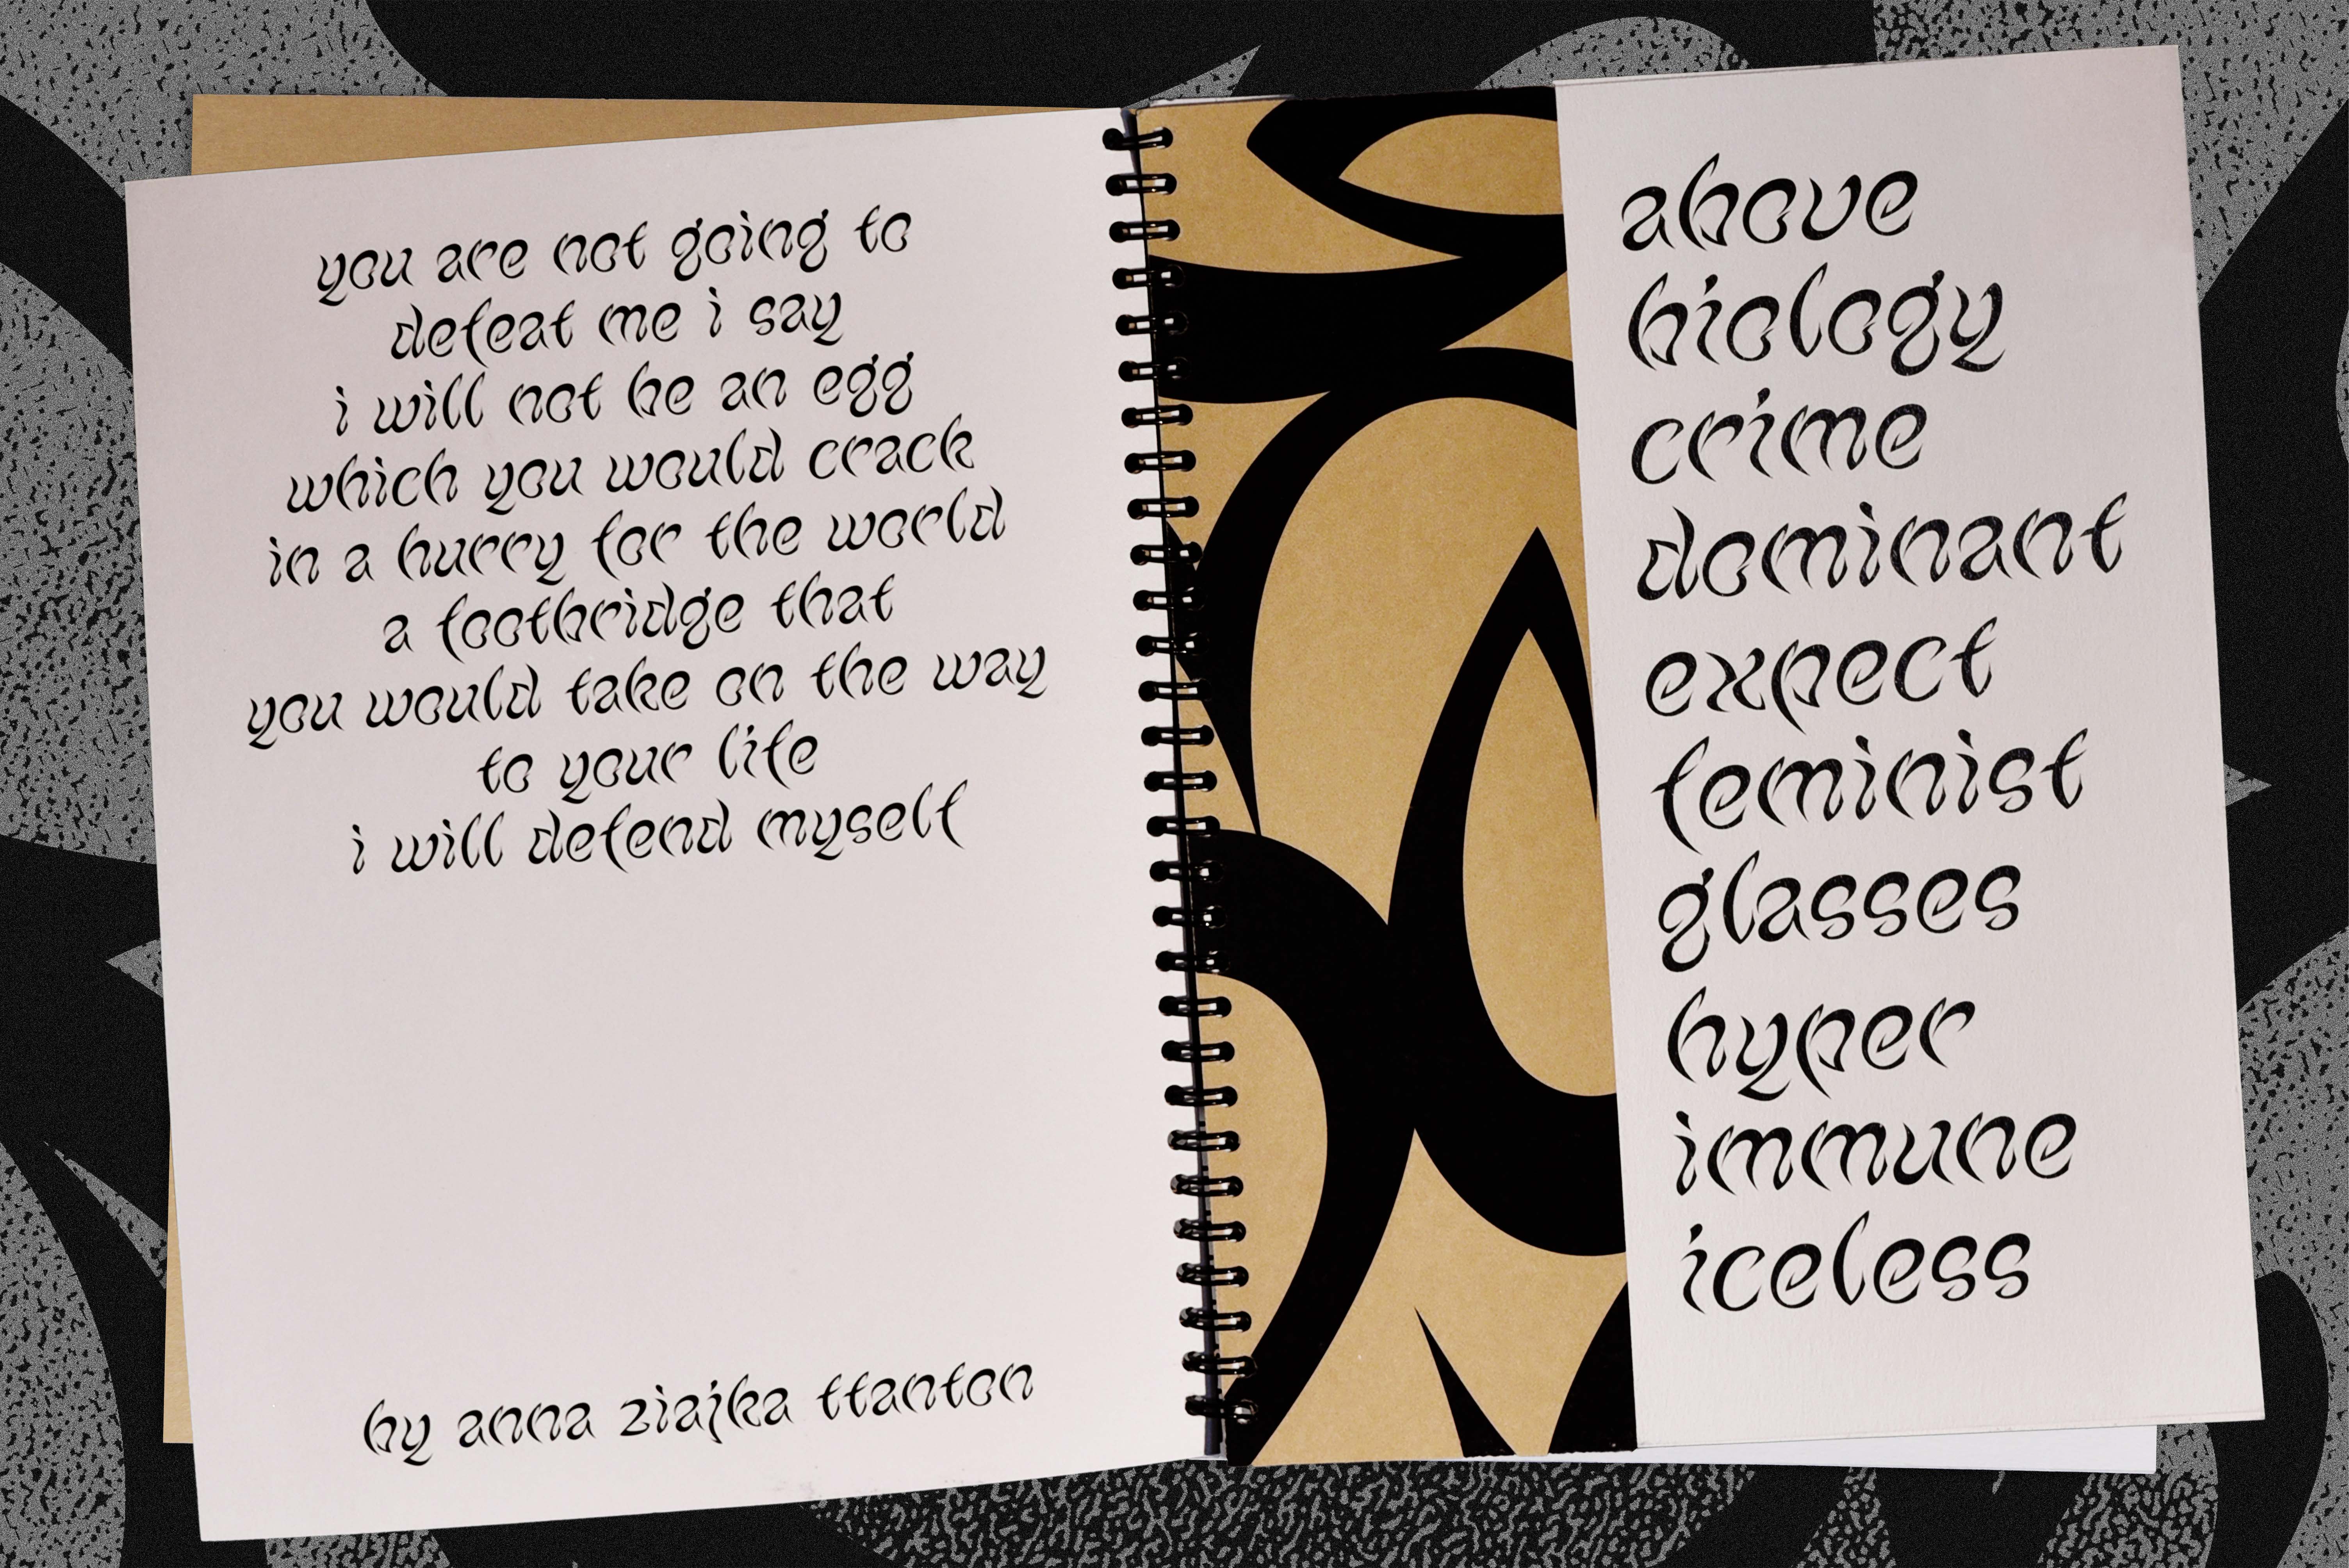 you are not going to
defeat me i say
i will not be an egg
which you would crack
in a hurry for the world
a footbridge that
you would take on the way
to your life
i will defend myself
by anna ziajka ttanton
above
biology
crime
dominant
expect
feminist
glasses
hyper
immune
iceless